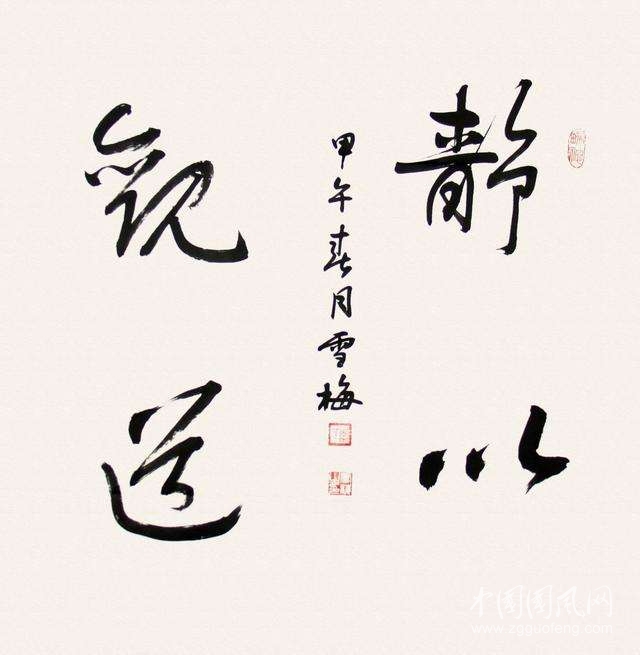 靜以
觀道
甲午春月雪梅
中国国风网
www.zgguofeng.com